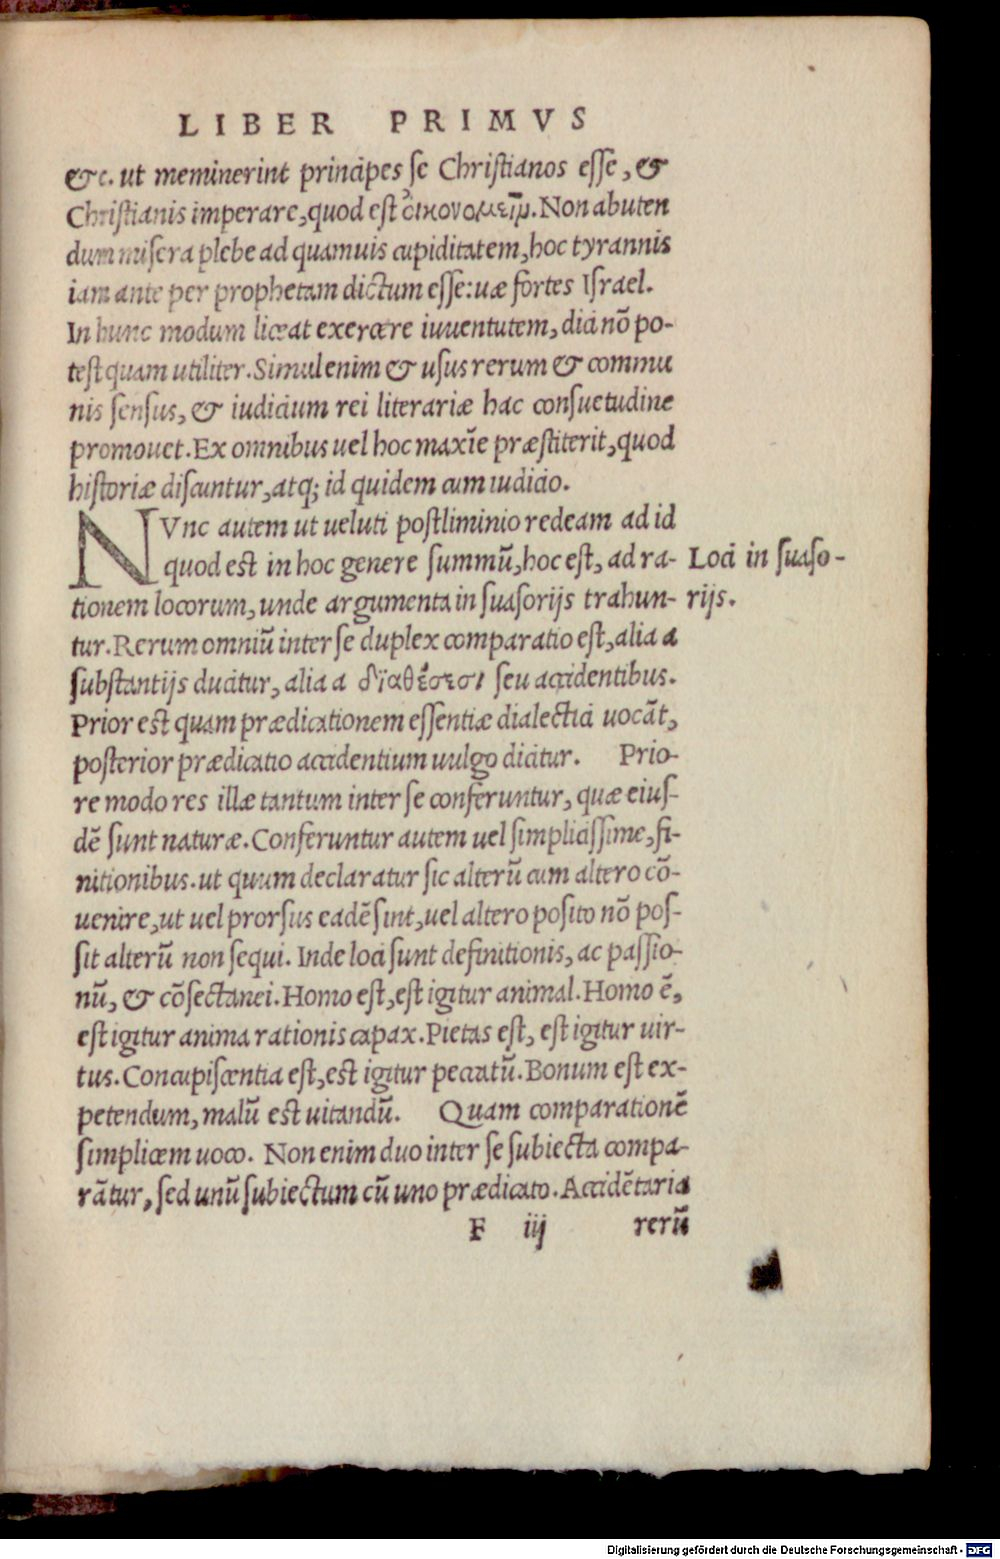 LIBER PRIMVS
&c. ut meminerint principes se Christianos esse, &
Christianis imperare, quod est οἰκονομεῖν. Non abuten
dum misera plebe ad quamuis cupiditatem, hoc tyrannis
iam ante per prophetam dictum esse: uæ fortes Israel.
In hunc modum liceat exercere iuuentutem, dici nō po-
test quam utiliter. Simul enim & usus rerum & commu
nis sensus, & iudicium rei literariæ hac consuetudine
promouet. Ex omnibus uel hoc maxīe præstiterit, quod
historiæ discuntur, atq; id quidem cum iudicio.
NVnc autem ut ueluti postliminio redeam ad id
quod est in hoc genere summū, hoc est, ad ra-
Loci in suaso-
tionem locorum, unde argumenta in suasorijs trahun-
rijs.
tur. Rerum omniū inter se duplex comparatio est, alia a
substantijs ducitur, alia a διαθέσεσι seu accidentibus.
Prior est quam prædicationem essentiæ dialectici uocāt,
posterior prædicatio accidentium uulgo dicitur. Prio-
re modo res illæ tantum inter se conferuntur, quæ eius-
dē sunt naturæ. Conferuntur autem uel simplicissime, fi-
nitionibus. ut quum declaratur sic alterū cum altero cō-
uenire, ut uel prorsus eadē sint, uel altero posito nō pos-
sit alterū non sequi. Inde loci sunt definitionis, ac passio-
nū, & cōsectanei. Homo est, est igitur animal. Homo ē,
est igitur anima rationis capax. Pietas est, est igitur uir-
tus. Concupiscentia est, est igitur peccatū. Bonum est ex-
petendum, malū est uitandū. Quam comparationē
simplicem uoco. Non enim duo inter se subiecta compa-
rātur, sed unū subiectum cū uno prædicato. Accidētaria
F iij rerū
Digitalisierung gefördert durch die Deutsche Forschungsgemeinschaft - DFG